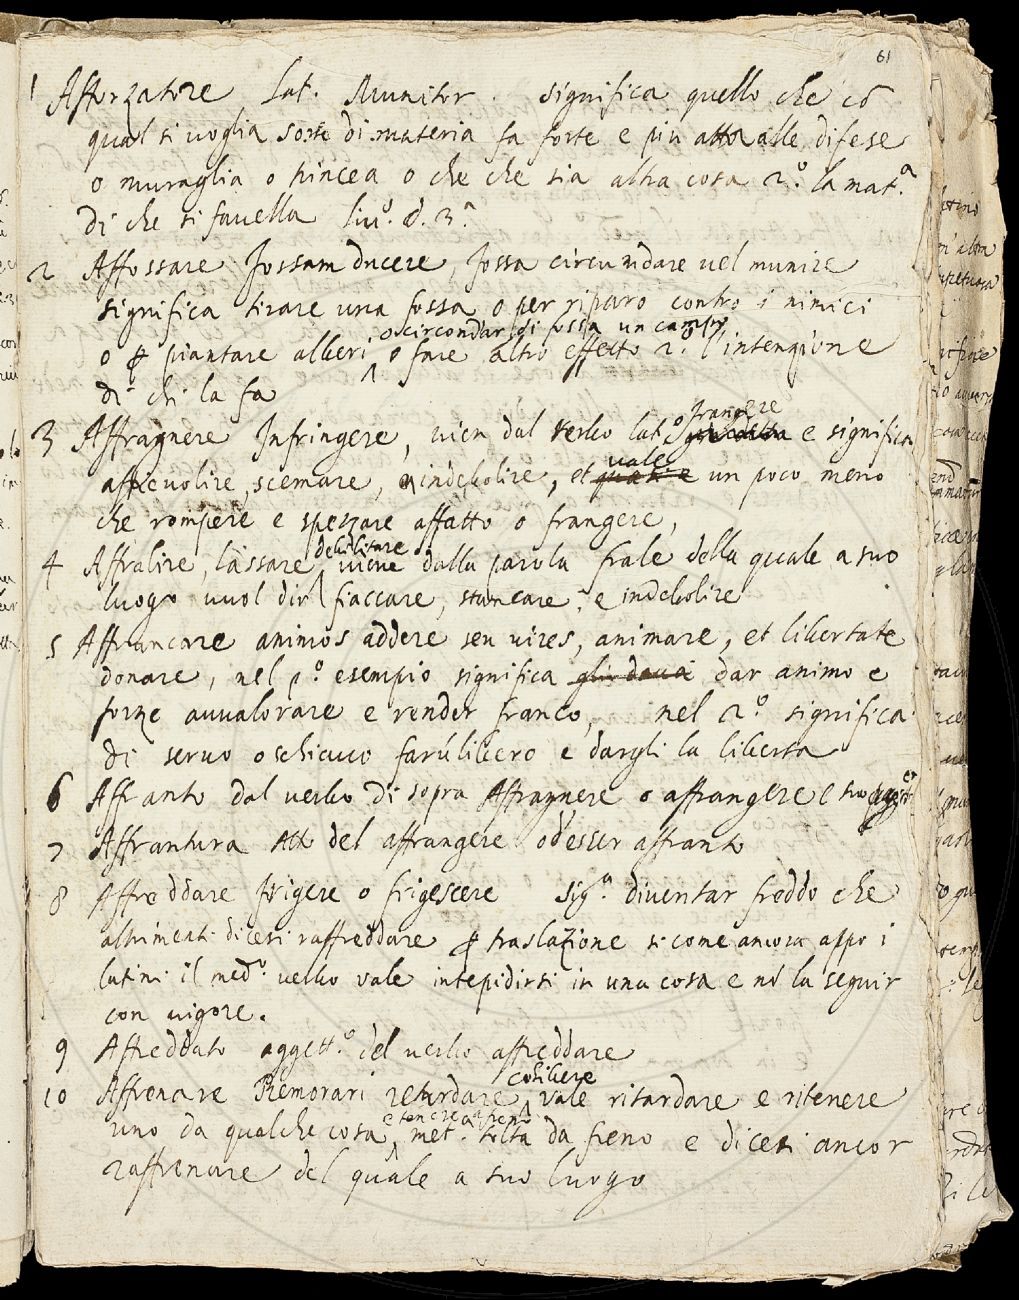 61
1 Afforzatore Lat. Munitor. significa quello che cõ
qual si voglia sorte di materia fa forte e piu atta alle difese
o muraglia o trincea o che che sia altra cosa 2.º la mat.ª
di che si favella liv.º d. 3.ª
2 Affossare fossam ducere, fossa circumdare vel munire
significa tirare una fossa o per riparo contro i nimici
o circondar di fossa un campo,
o p piantare alberi ^ o fare altro effetto 2.º l'intenzione
di chi la fa
3 Affragnere Infringere, vien dal verbo lat.º frangere e significa
affievolire, scemare, indebolire, et vale un poco meno
che rompere e spezzare affatto o frangere,
4 Affralire, lassare, debilitare viene dalla parola frale della quale a suo
luogo vuol dir fiaccare, stancare, e indebolire
5 Affrancare animos addere seu vires, animare, et libertate
donare, nel p.º esempio significa dar animo e
forze avvalorare e render franco, nel 2.º significa
di servo o schiavo farlo libero e dargli la liberta
6 Affranto dal verbo di sopra Affragnere o affrangere e suo
7 Affrantura att.º del affrangere o d'esser affranto
8 Affreddare frigere o frigescere sig.ª diventar freddo che
altrimenti dicesi raffreddare p traslazione si come ancora appo i
latini il med.º verbo vale intepidirsi in una cosa e nõ la seguir
con vigore.
9 Affreddato aggett.º del verbo affreddare
10 Affrenare Remorari retardare, cohibere vale ritardare e ritenere
uno da qualche cosa, e tenere a freno met. tolta da freno e dicesi ancor
raffrenare del quale a suo luogo